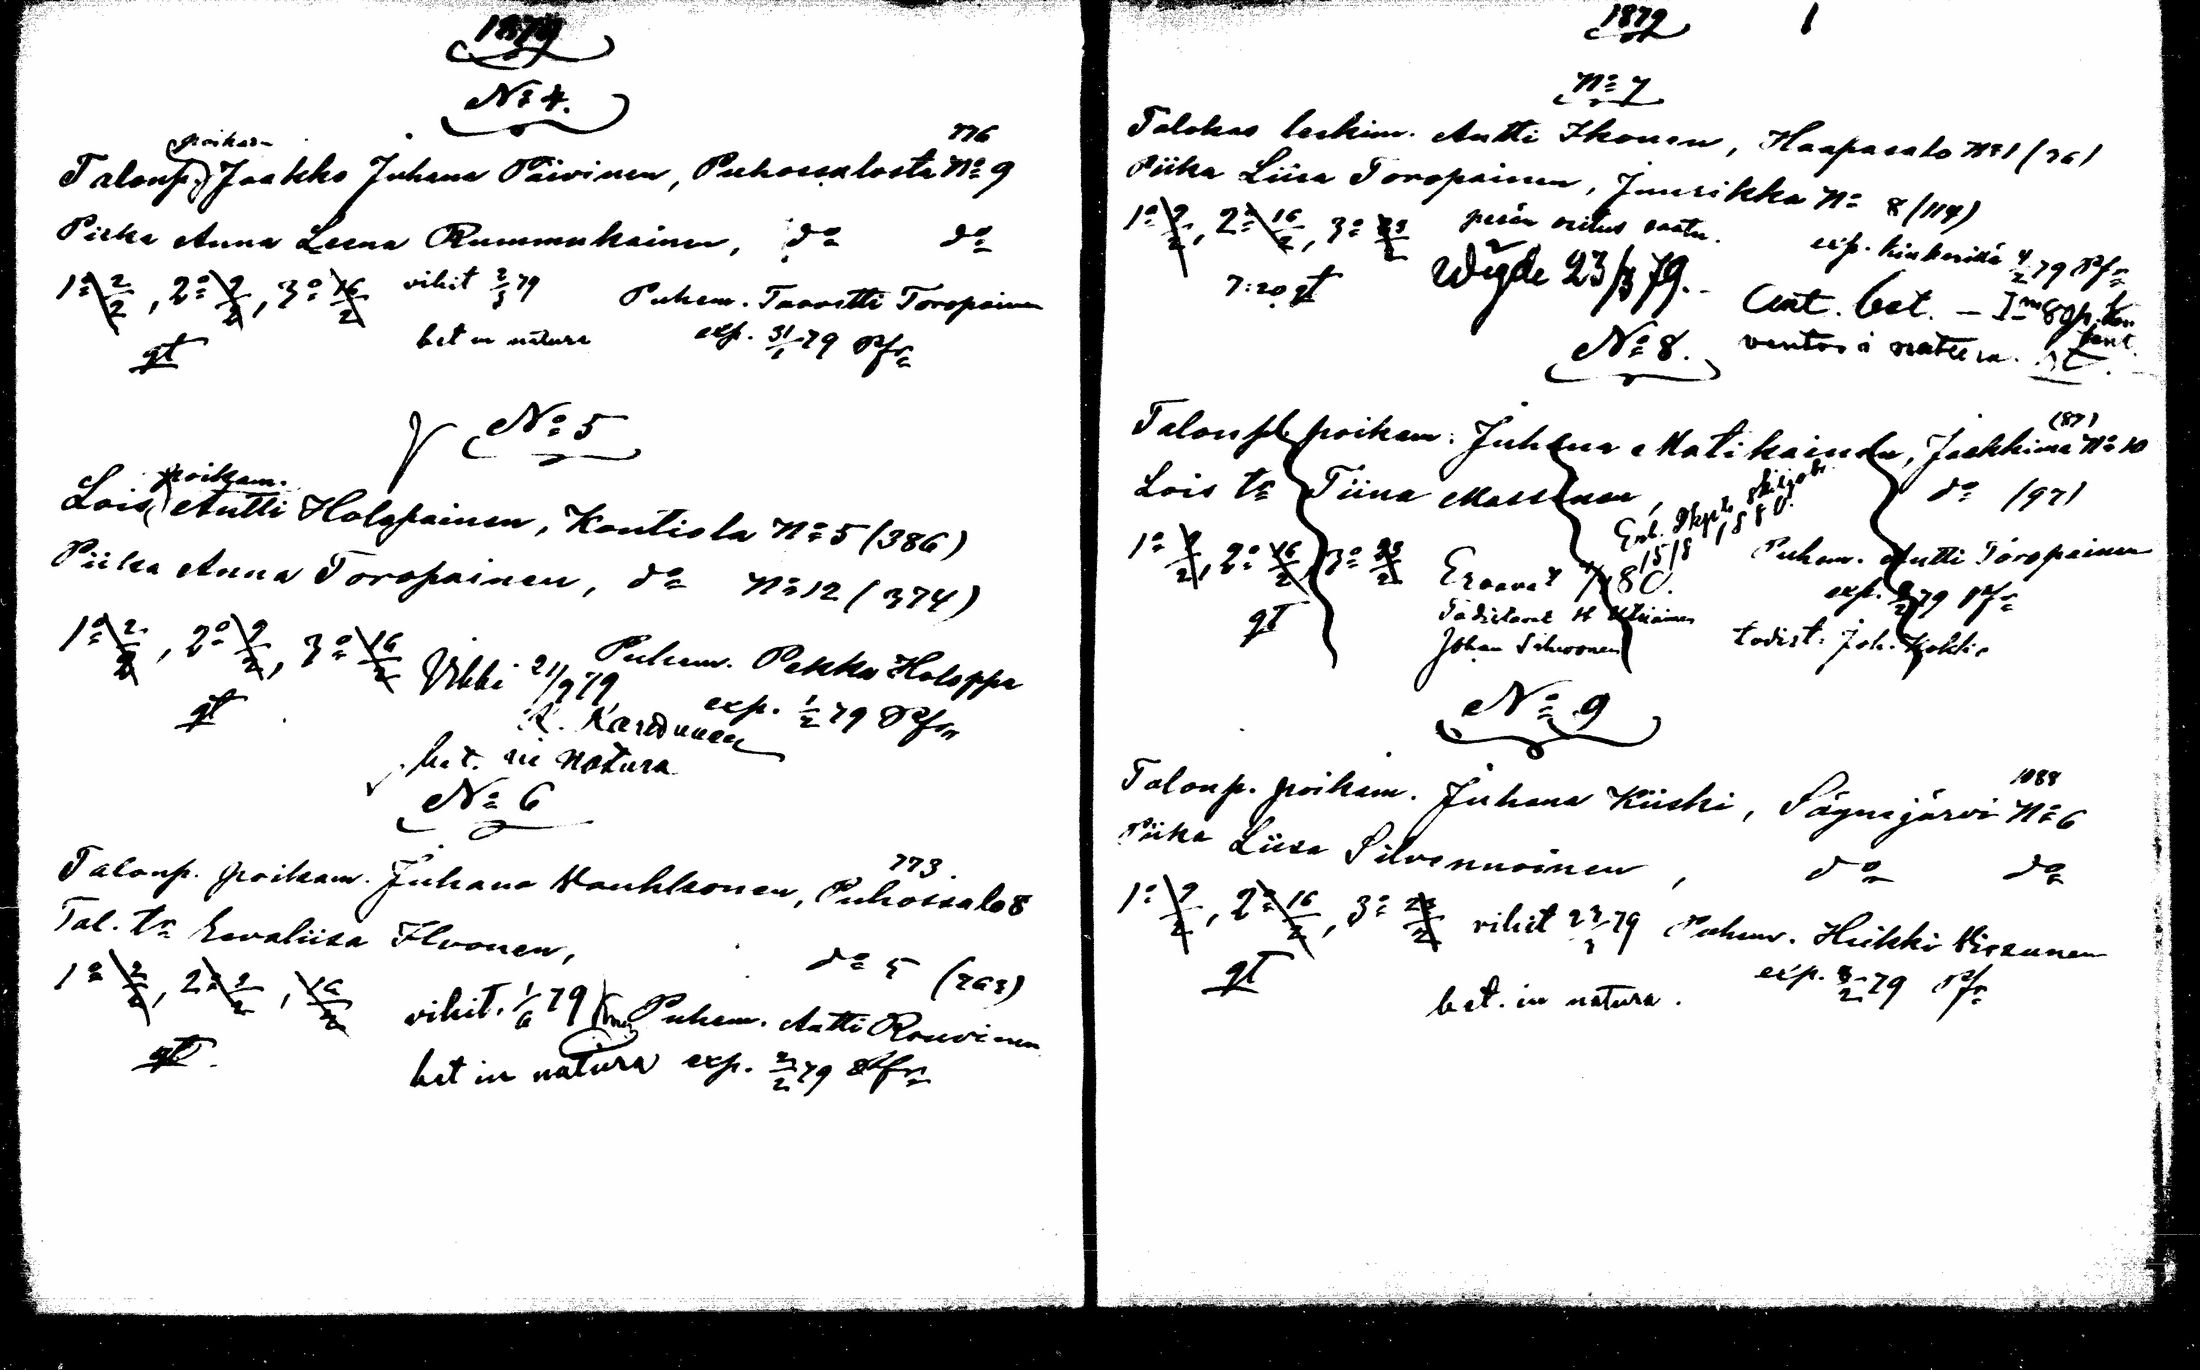 1879
No 4.
776
poikam
Talonp. Jaakko Juhana Päivinen, Puhossalosta No 9
Piika Anna Leena Rummukainen, do do
1o 2/2, 2o 9/2, 3o 16/2 vihit 2/3 79 Puhem. Taavetti Toropainen
gt bet in natura exp. 31/1 79 Pfr
No 5
poikam.
Lois Antti Holopainen, Kontiola No 5 (386)
Piika Anna Toropainen, do No 12 (374)
1o 2/2, 2o 9/2, 3o 16/2 Puhem. Pekka Holoppa
gt Vihki 21/9 79 exp. 1/2 79 Pfr
bet. in natura
No 6
773.
Talonp. poikam. Juhana Vauhkonen, Puhossalo 8
Tal. tr Eevaliisa Ilvonen, do 5 (763)
1o 2/2, 2o 9/2, 16/2 vihit. 1/6 79 Puhem. Antti Rouvinen
gt. bet in natura exp. 2/2 79 Pfr
1879
No 7
Talokas leskim. Antti Ikonen, Haapasalo No 1 (76)
Piika Liisa Toropainen, Juurikka No 8 (114)
1o 9/2, 2o 16/2, 3o 23/2 perän eritus saatu. exp. kinkerillä 4/2 79 Pfr
7:20 gt Wigde 23/3 79. Ant. bet. –
ventos i natura.
No 8.
(87)
Talonp. poikam. Juhana Matikainen, Jaakkima No 10
Lois tr Tiina Massinen, do (97)
1o 9/2, 2o 16/2, 3o 23/2 Puhem. Antti Toropainen
gt Eroavat 80. exp. 79 Pfr
Todistavat
Johan Silvonen todist. Joh. Kokki
No 9
1088
Talonp. poikam. Juhana Kiiski, Sägnejärvi No 6
Piika Liisa Silvennoinen, do do
1o 9/2, 2o 16/2, 3o 23/2 vihit 23/3 79 Puhem. Heikki Hirvonen
gt bet. in natura. exp. 8/2 79 Pfr